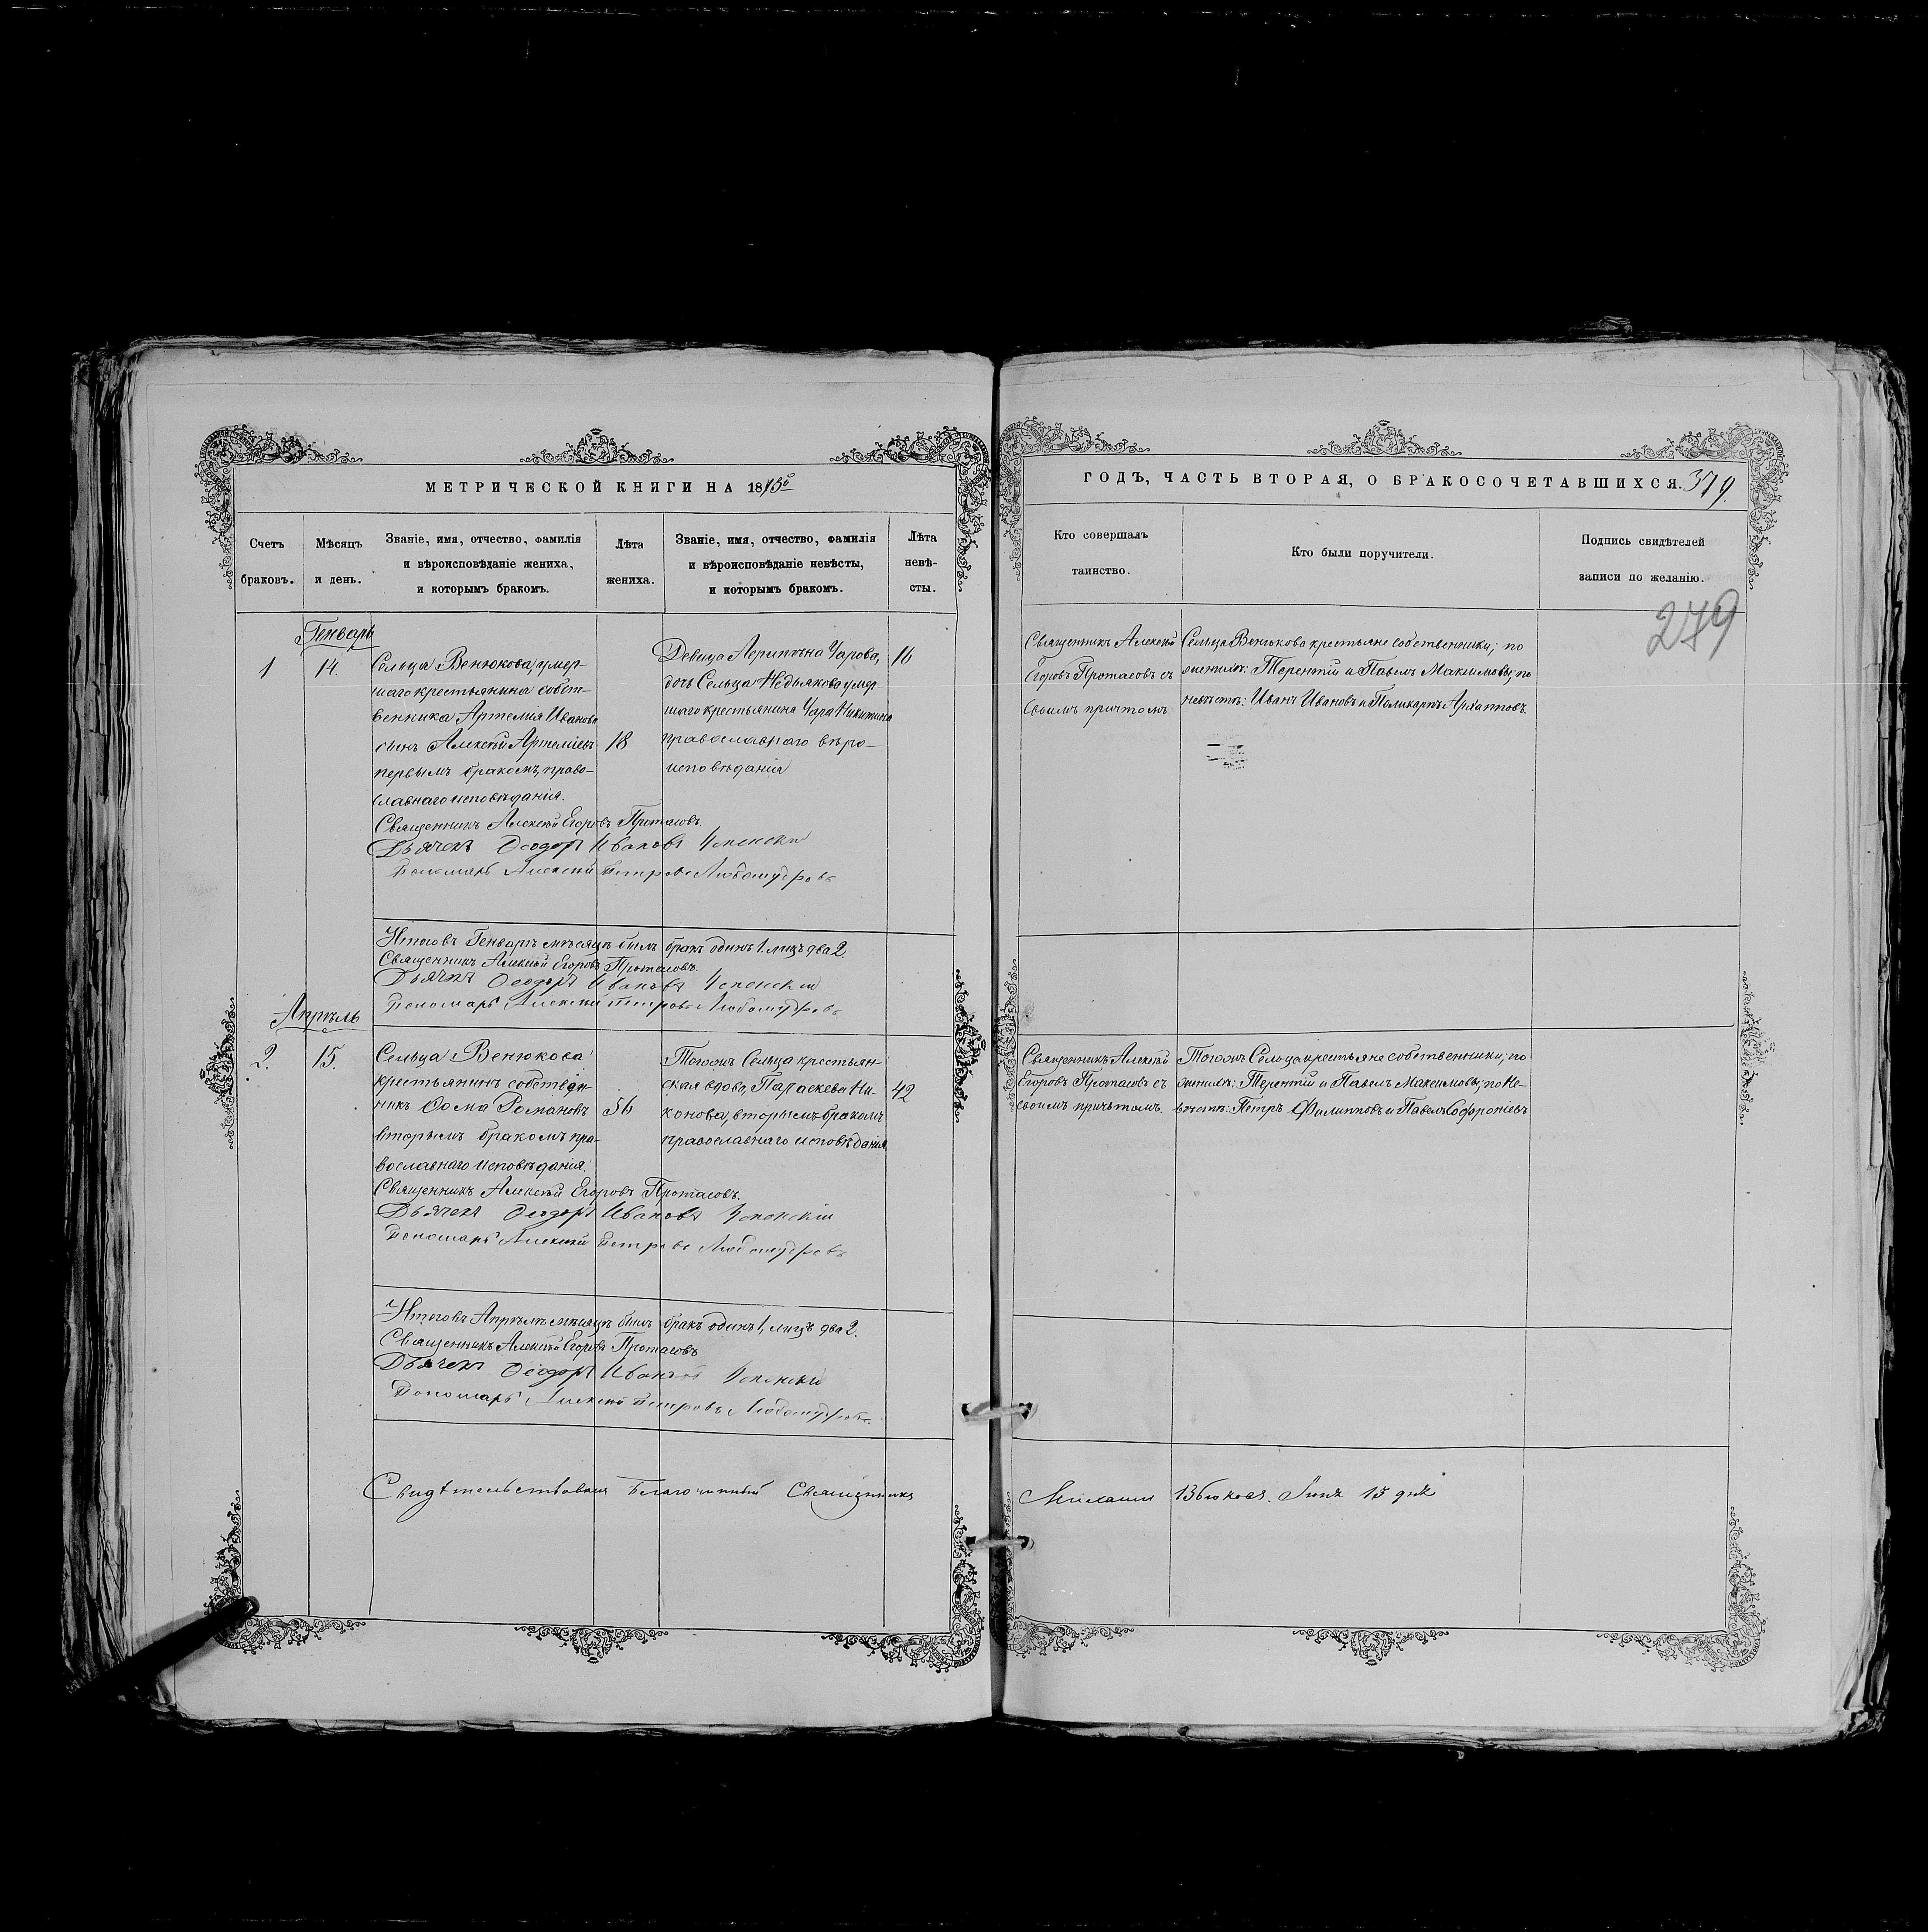 МЕТРИЧЕСКОЙ КНИГИ НА 1873й
Счетъ
браковъ.
Мѣсяцъ
и день.
Званіе, имя, отчество, фамилія
и вѣроисповѣданіе жениха,
и которымъ бракомъ.
Лѣта
жениха.
Званіе, имя, отчество, фамилія
и вѣроисповѣданіе невѣсты,
и которымъ бракомъ.
Лѣта
невѣ-
сты.
Генварь
1
14.
Сельца Венюкова, умер-
шаго крестьянина собст-
венника Артемія Иванова
сынъ Алексѣй Артеміевъ
первымъ бракомъ, право-
славнаго исповѣданія.
18
Девица Агрипѣна Уарова,
дочь Сельца Недьякова умер-
шаго крестьянина Уара Никитина
православнаго вѣро-
исповѣданія
16
Священникъ Алексѣй Егоровъ Протасовъ.
Дьячекъ Ѳеодоръ Ивановъ Успенскій
Пономарь Алексѣй Петровъ Любомудровъ
Итого въ Генварѣ мѣсяцѣ былъ бракъ одинъ 1. лицъ два 2.
Священникъ Алексѣй Егоровъ Протасовъ.
Дьячекъ Ѳеодоръ Ивановъ Успенскій
Пономарь Алексѣй Петровъ Любомудровъ
Апрѣль
2.
15.
Сельца Венюкова
крестьянинъ собствен-
никъ Ѳома Романовъ
вторымъ бракомъ пра-
вославнаго исповѣданія.
56
Тогожъ Сельца крестьян-
ская вдова, Параскева Ни-
конова, вторымъ бракомъ
православнаго исповѣданія
42
Священникъ Алексѣй Егоровъ Протасовъ.
Дьячекъ Ѳеодоръ Ивановъ Успенскій
Пономарь Алексѣй Петровъ Любомудровъ
Итого въ Апрѣлѣ мѣсяцѣ былъ бракъ одинъ 1, лицъ два 2.
Священникъ Алексѣй Егоровъ Протасовъ
Дьячекъ Ѳеодоръ Ивановъ Успенскій
Пономарь Алексѣй Петровъ Любомудровъ.
Свидѣтельствовалъ Благочинный Священникъ
ГОДЪ, ЧАСТЬ ВТОРАЯ, О БРАКОСОЧЕТАВШИХСЯ. 379.
Кто совершалъ
таинство.
Кто были поручители.
Подпись свидѣтелей
записи по желанію.
279
Священникъ Алексѣй
Егоровъ Протасовъ съ
своимъ причтомъ
Сельца Венюкова крестьяне собственники; по
женихѣ: Терентій и Павелъ Максимовы; по
невѣстѣ: Иванъ Ивановъ и Поликарпъ Архиповъ.
Священникъ Алексѣй
Егоровъ Протасовъ съ
своимъ причтомъ.
Тогожъ Сельца крестьяне собственники; по
женихѣ: Терентій и Павелъ Максимовы; по Не-
вѣстѣ: Петръ Филипповъ и Павелъ Софроніевъ
Іюнь 15 дня